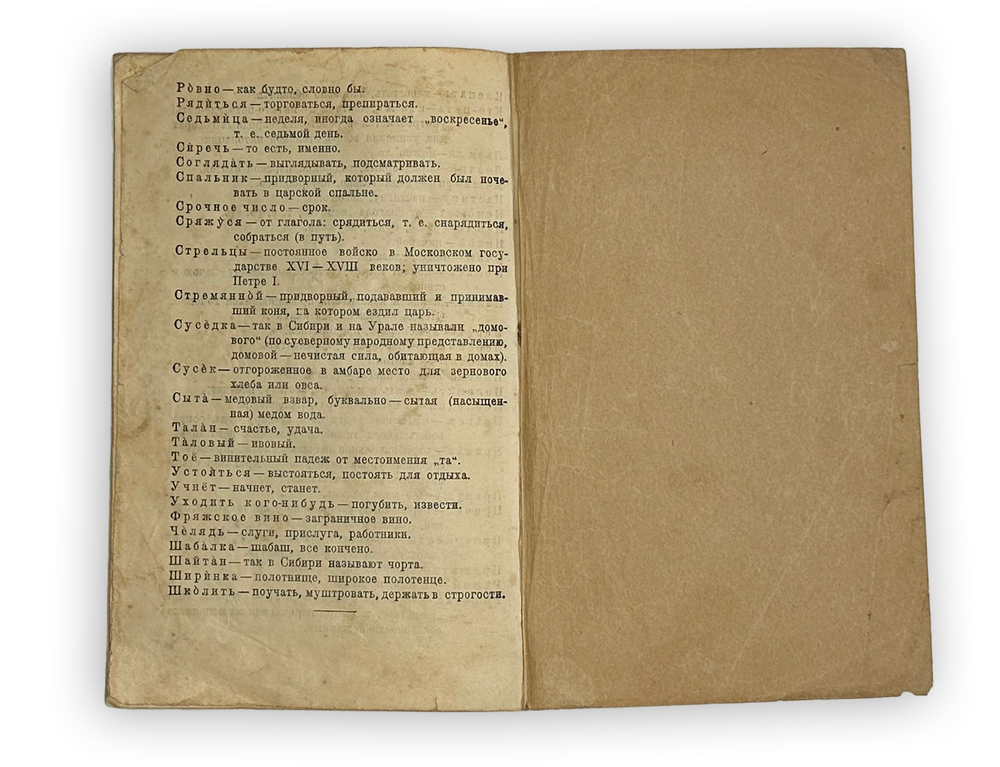 Ро̀вно — как будто, словно бы.
Ряди̇̀ться — торговаться, препираться.
Седьми̇̀ца — неделя, иногда означает „воскресенье“,
т. е. седьмой день.
Си̇̀речь — то есть, именно.
Согляда̀ть — выглядывать, подсматривать.
Спальник — придворный, который должен был ноче-
вать в царской спальне.
Срочное число — срок.
Сряжу̀ся — от глагола: срядиться, т. е. снарядиться,
собраться (в путь).
Стрельцы — постоянное войско в Московском госу-
дарстве XVI — XVIII веков; уничтожено при
Петре I.
Стремянно̀й — придворный, подававший и принимав-
ший коня, на котором ездил царь.
Сусѐдка — так в Сибири и на Урале называли „домо-
вого“ (по суеверному народному представлению,
домовой — нечистая сила, обитающая в домах).
Сусѐк — отгороженное в амбаре место для зернового
хлеба или овса.
Сыта̀ — медовый взвар, буквально — сытая (насыщен-
ная) медом вода.
Тала̀н — счастье, удача.
Та̀ловый — ивовый.
Тоё — винительный падеж от местоимения „та“.
Устоя̀ться — выстояться, постоять для отдыха.
Учнёт — начнет, станет.
Уходить кого-нибудь — погубить, извести.
Фряжское вино — заграничное вино.
Чѐлядь — слуги, прислуга, работники.
Шаба̀лка — шабаш, все кончено.
Шайта̀н — так в Сибири называют чорта.
Шири̇̀нка — полотнище, широкое полотенце.
Шко̀лить — поучать, муштровать, держать в строгости.